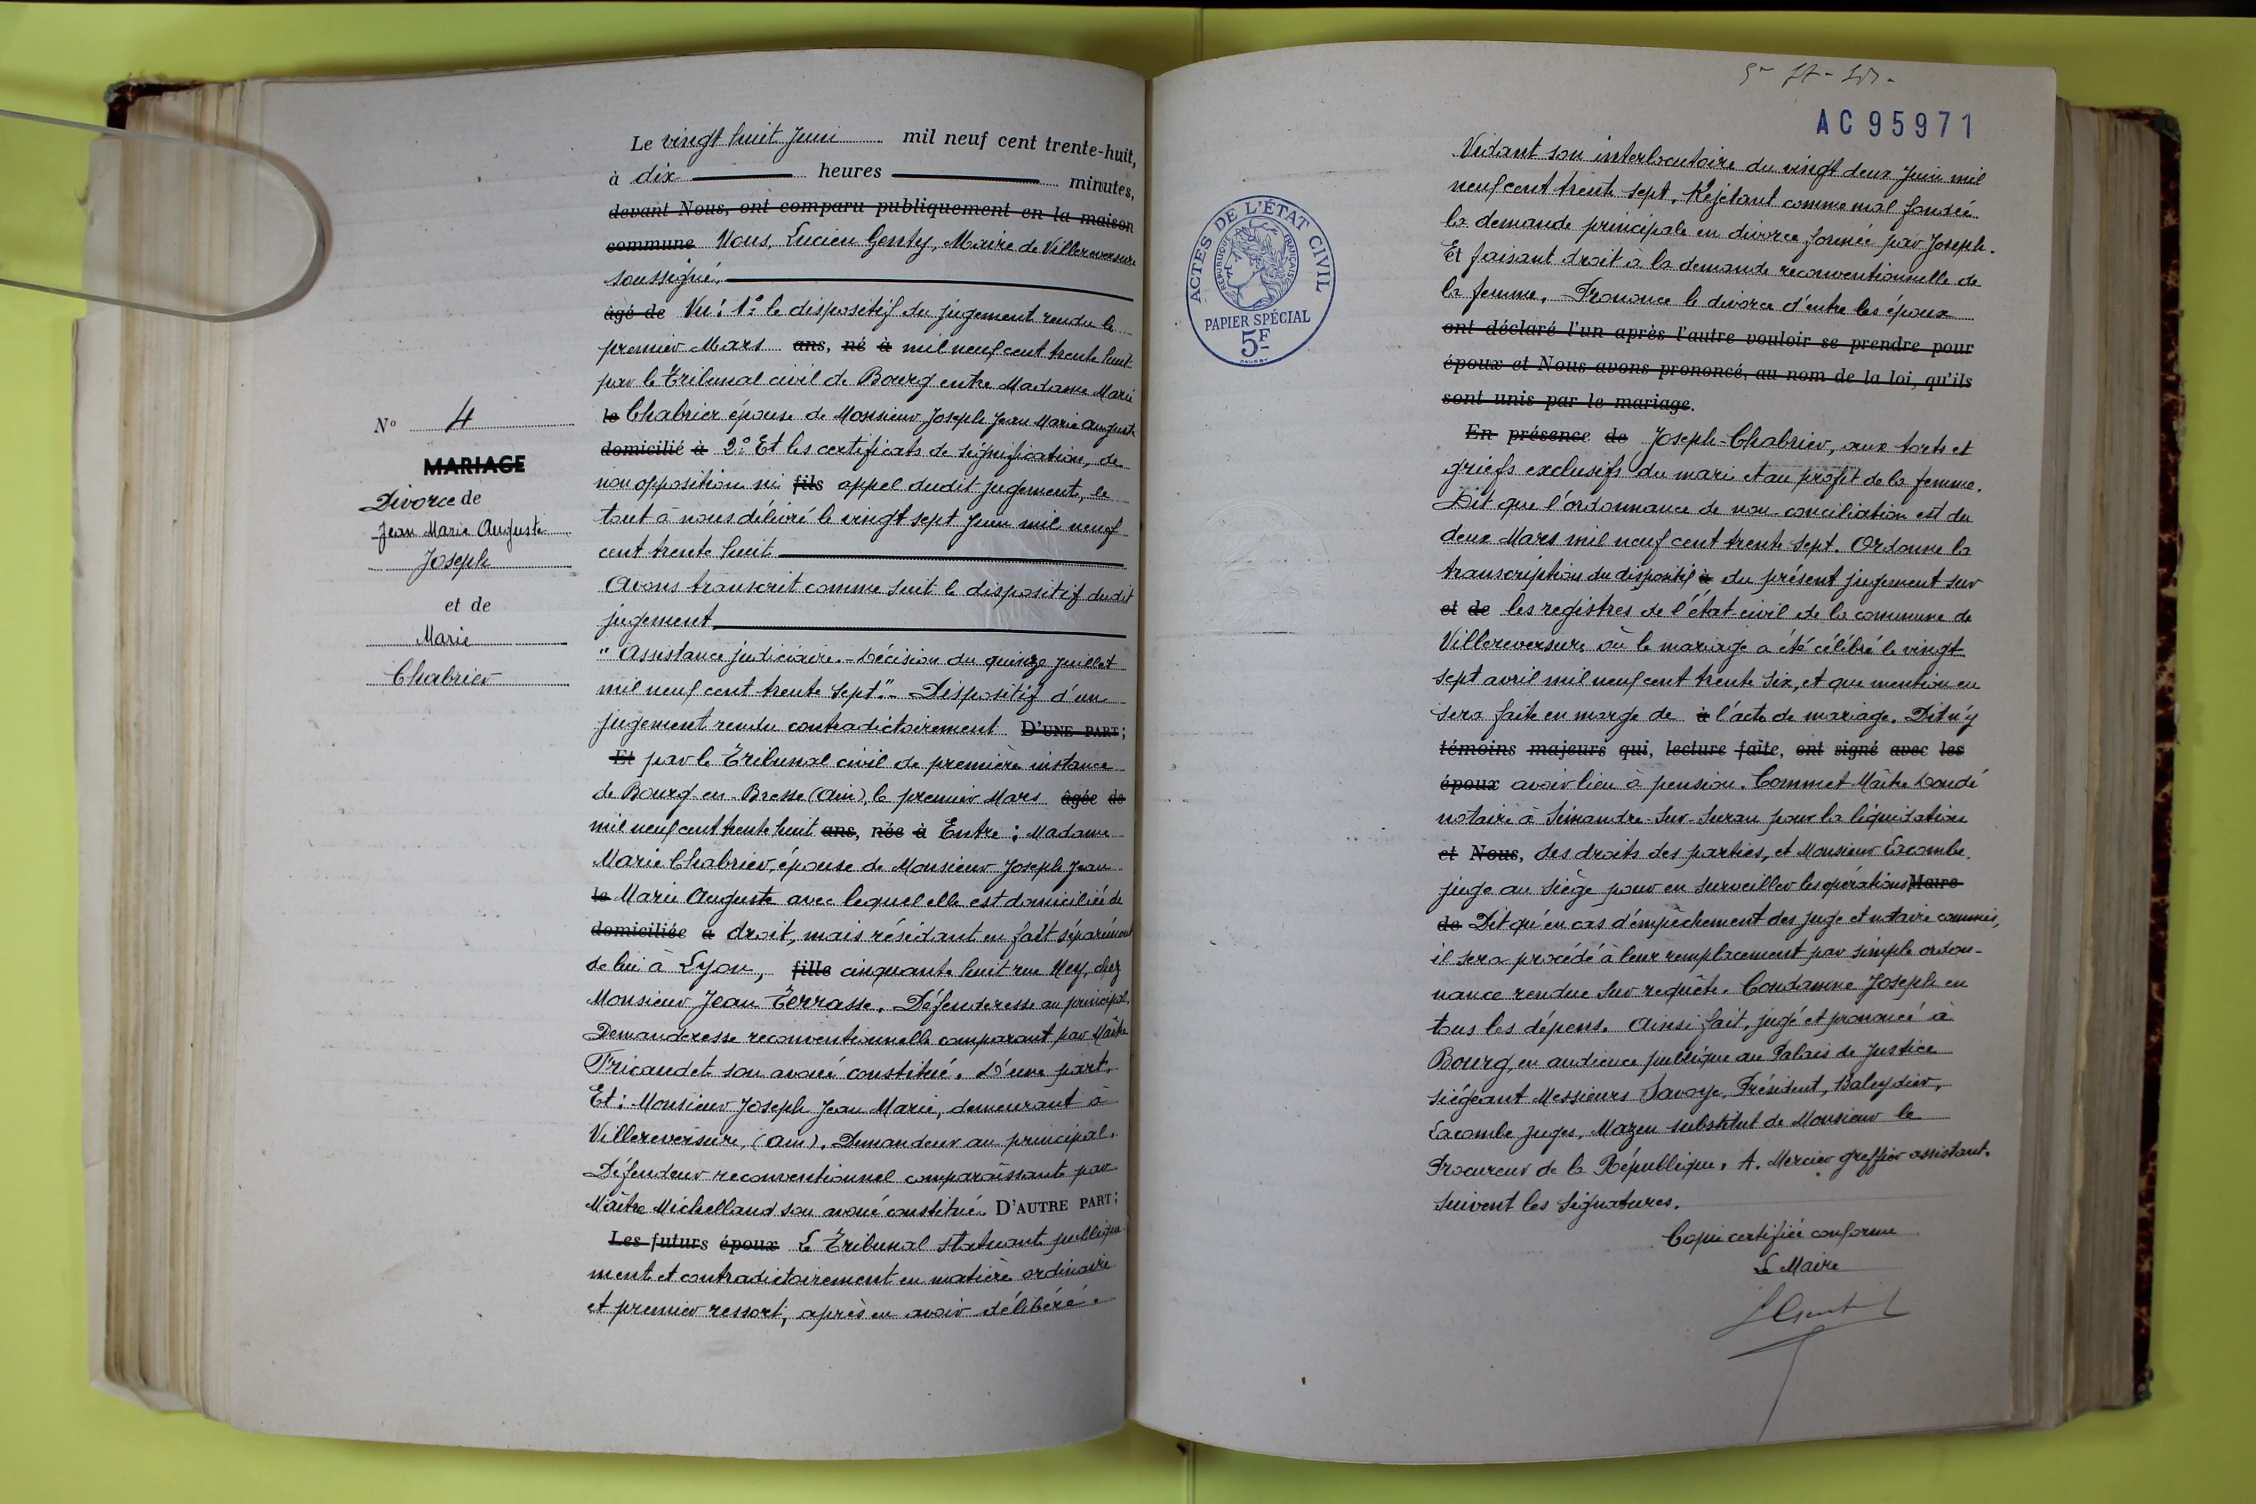 Le vingt huit Juin mil neuf cent trente-huit,
à dix heures minutes,
devant Nous, ont comparu publiquement en la maison
commune Nous, Lucien Genty, Maire de Villereversure
soussigné,
âgé de Vu : 1° le dispositif du jugement rendu le
premier Mars ans, né à mil neuf cent trente huit
par le Tribunal civil de Bourg entre Madame Marie
le Chabrier épouse de Monsieur Joseph Jean Marie Auguste
domicilié à 2° Et les certificats de signification, de
non opposition ni fils appel dudit jugement, le
tout à nous délivré le vingt sept Juin mil neuf
cent trente huit
Avons transcrit comme suit le dispositif dudit
jugement
"Assistance judiciaire. - Décision du quinze Juillet
mil neuf cent trente sept". - Dispositif d'un
jugement rendu contradictoirement D'UNE PART ;
Et par le Tribunal civil de première instance
de Bourg en Bresse (Ain), le premier Mars âgée de
mil neuf cent trente huit ans, née à Entre : Madame
Marie Chabrier, épouse de Monsieur Joseph Jean
le Marie Auguste avec lequel elle est domiciliée de
domiciliée à droit, mais résidant en fait séparément
de lui à Lyon, fille cinquante huit rue Ney, chez
Monsieur Jean Terrasse. Défenderesse au principal.
Demanderesse reconventionnelle comparant par Maître
Fricaudet son avoué constitué. D'une part.
Et : Monsieur Joseph Jean Marie, demeurant à
Villereversure, (Ain). Demandeur au principal.
Défendeur reconventionnel comparaissant par
Maître Michelland son avoué constitué. D'AUTRE PART ;
Les futurs époux Le Tribunal statuant publique
ment et contradictoirement en matière ordinaire
et premier ressort, après en avoir délibéré.
N° 4
MARIAGE
Divorce de
Jean Marie Auguste
Joseph
et de
Marie
Chabrier
AC 95971
ACTES DE L'ÉTAT CIVIL
RÉPUBLIQUE FRANÇAISE
PAPIER SPÉCIAL
5F
Vidant son interlocutoire du vingt deux Juin mil
neuf cent trente sept. Rejetant comme mal fondée
la demande principale en divorce formée par Joseph.
Et faisant droit a la demande reconventionnelle de
la femme. Prononce le divorce d'entre les époux
ont déclaré l'un après l'autre vouloir se prendre pour
époux et Nous avons prononcé, au nom de la loi, qu'ils
sont unis par le mariage.
En présence de Joseph-Chabrier, aux torts et
griefs exclusifs du mari et au profit de la femme.
Dit que l'ordonnance de non-conciliation est du
deux Mars mil neuf cent trente sept. Ordonne la
transcription du dispositif à du présent jugement sur
et de les registres de l'état-civil de la commune de
Villereversure où le mariage a été célébré le vingt
sept avril mil neuf cent trente six, et que mention en
sera faite en marge de à l'acte de mariage. Dit n'y
témoins majeurs qui, lecture faite, ont signé avec les
époux avoir lieu à pension. Commet Maître Daudé
notaire à Simandre-sur-Suran pour la liquidation
et Nous, des droits des parties, et Monsieur Lacombe.
juge au siège pour en surveiller les opérations Maire
de Dit qu'en cas d'empêchement des juge et notaire commis,
il sera procédé à leur remplacement par simple ordon-
nance rendue sur requête. Condamne Joseph en
tous les dépens. Ainsi fait, jugé et prononcé à
Bourg, en audience publique au Palais de Justice
siégeant Messieurs Savoye, Président, Baleydier,
Lacombe Juges, Mazen substitut de Monsieur le
Procureur de la République, A. Mercier greffier assistant.
suivent les signatures.
Copie certifiée conforme
Le Maire